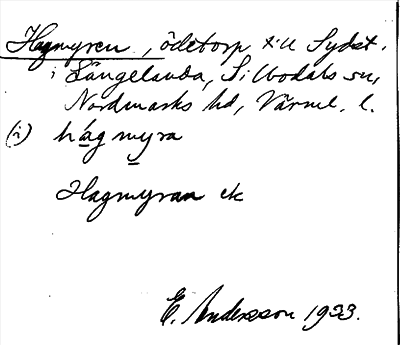 Hagmyren, ödetorp till Sydst.
i Långelanda, Sillbodals sn,
Nordmarks hd, Värml. l.
(i) hágmyra
Hagmyran ek
E. Andersson 1933.